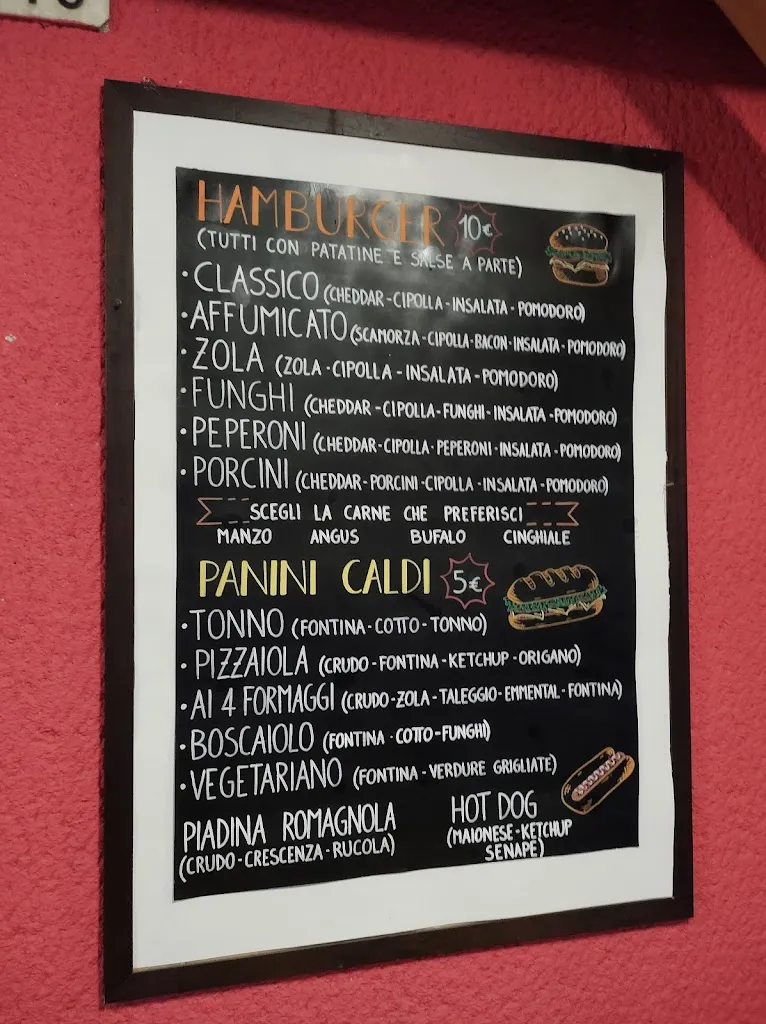 HAMBURGER 10€
(TUTTI CON PATATINE E SALSE A PARTE)
• CLASSICO (CHEDDAR-CIPOLLA-INSALATA-POMODORO)
• AFFUMICATO (SCAMORZA-CIPOLLA-BACON-INSALATA-POMODORO)
• ZOLA (ZOLA-CIPOLLA-INSALATA-POMODORO)
• FUNGHI (CHEDDAR-CIPOLLA-FUNGHI-INSALATA-POMODORO)
• PEPERONI (CHEDDAR-CIPOLLA-PEPERONI-INSALATA-POMODORO)
• PORCINI (CHEDDAR-PORCINI-CIPOLLA-INSALATA-POMODORO)
SCEGLI LA CARNE CHE PREFERISCI
MANZO ANGUS BUFALO CINGHIALE
PANINI CALDI 5€
• TONNO (FONTINA-COTTO-TONNO)
• PIZZAIOLA (CRUDO-FONTINA-KETCHUP-ORIGANO)
• AI 4 FORMAGGI (CRUDO-ZOLA-TALEGGIO-EMMENTAL-FONTINA)
• BOSCAIOLO (FONTINA-COTTO-FUNGHI)
• VEGETARIANO (FONTINA-VERDURE GRIGLIATE)
PIADINA ROMAGNOLA
(CRUDO-CRESCENZA-RUCOLA)
HOT DOG
(MAIONESE-KETCHUP
SENAPE)